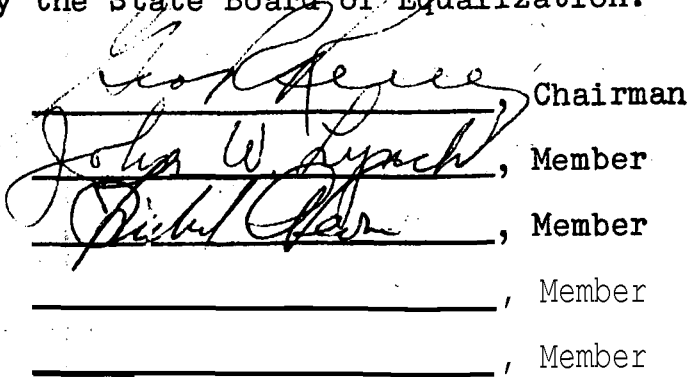 y the State Board of Equalization.
Geo R Reilly, Chairman
John W. Lynch, Member
Richard Nevins, Member
, Member
, Member